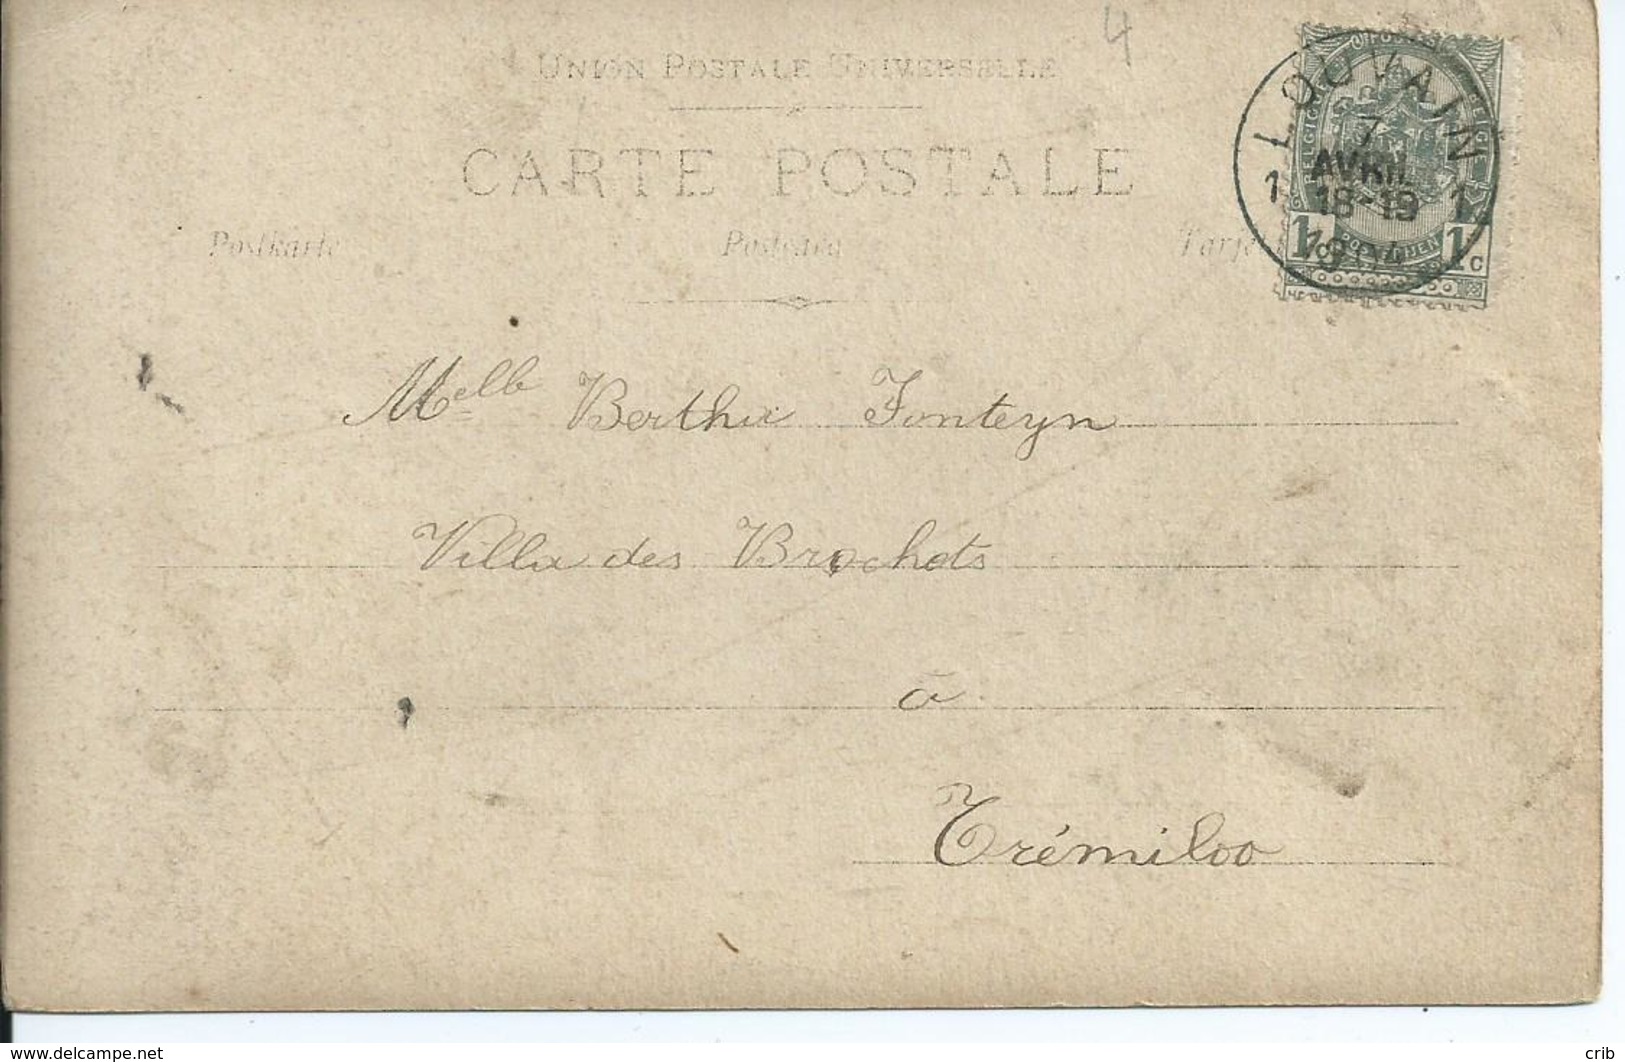 4
UNION POSTALE UNIVERSELLE
CARTE POSTALE
Postkarte Postcard Tarje
LOUVAIN
7
AVRIL
1 18-19 1
1904
1c 1c
Melle Bertha Fonteyn
Villa des Brochets
à
Trémiloo
www.delcampe.net
crib